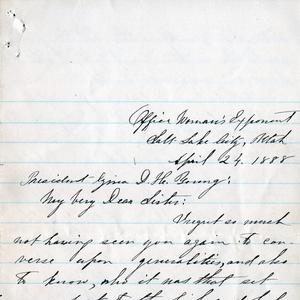 Office Woman's Exponent
Salt Lake City, Utah
April 24. 1888
President Zina D. H. Young:
My Very Dear Sister:
I regret so much
not having seen you again to con-
verse upon generalities, and also
to know, who it was that set